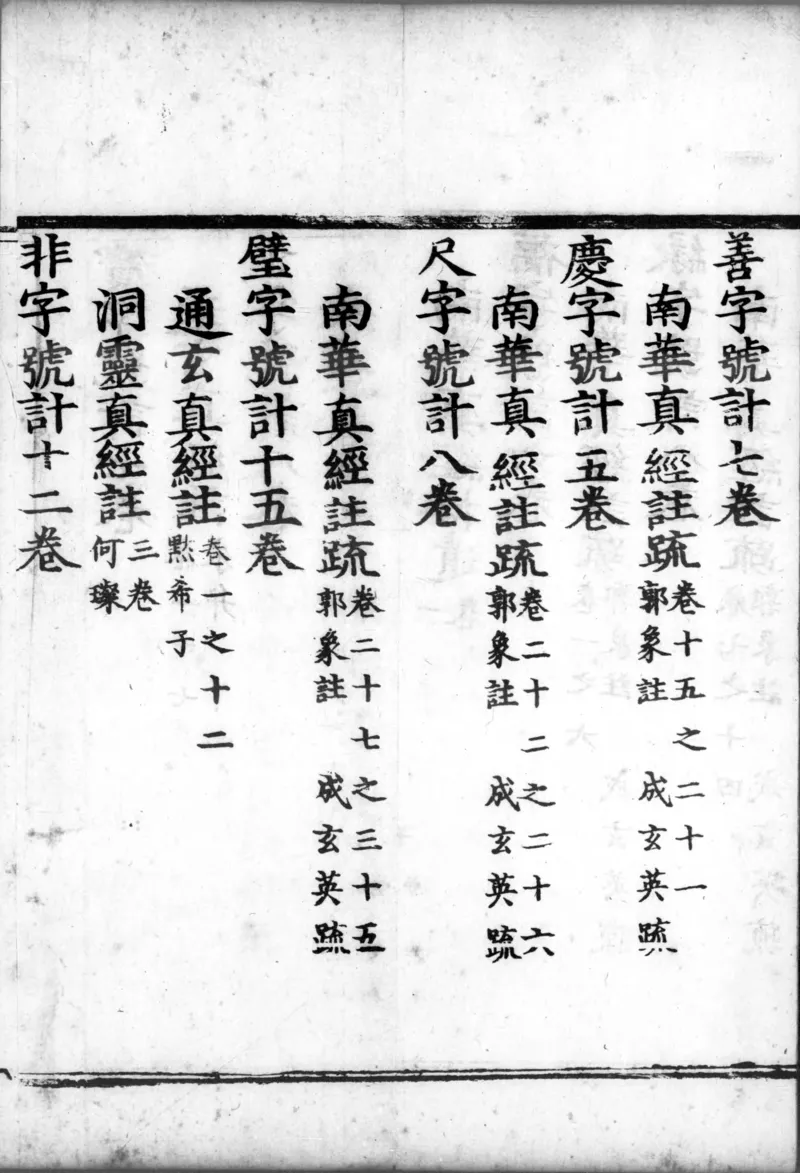 善字號計七卷
南華真經註疏卷十五之二十一
郭象註　成玄英疏
慶字號計五卷
南華真經註疏卷二十二之二十六
郭象註　成玄英疏
尺字號計八卷
南華真經註疏卷二十七之三十五
郭象註　成玄英疏
璧字號計十五卷
通玄真經註卷一之十二
黙希子
洞靈真經註三卷
何璨
非字號計十二卷